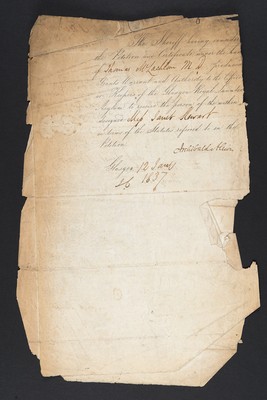 The Sheriff having considered
the Petition and Certificate under the hand
of Thomas McLachlan M.D. Grants
Warrant and Authority to the
Keepers of the Glasgow Royal Lunatic
Asylum to receive the person of the within
designed Miss Janet Stewart
in terms of the Statutes referred to in the
Petition
Archibald Alison
Glasgow 12 Jany
1837